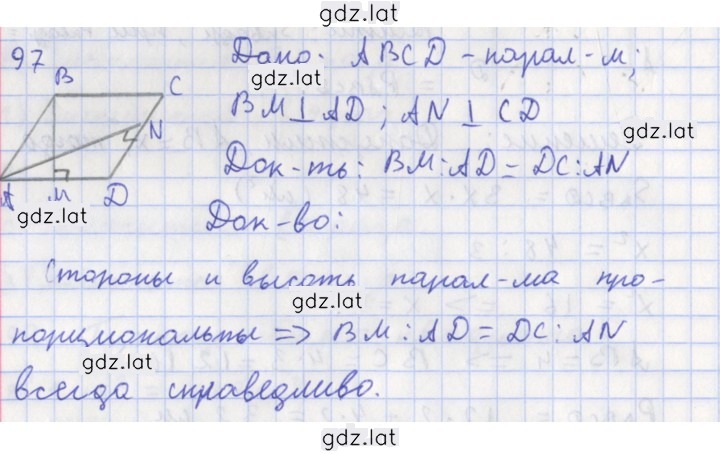 gdz.lat
97
Дано: ABCD - парал-м;
gdz.lat
B
C
BM ⊥ AD ; AN ⊥ CD
N
gdz.lat
Док-ть: BM : AD = DC : AN
A M D
gdz.lat
Док-во:
Стороны и высоты парал-ма про-
gdz.lat
порциональны => BM : AD = DC : AN
gdz.lat
всегда справедливо.
gdz.lat